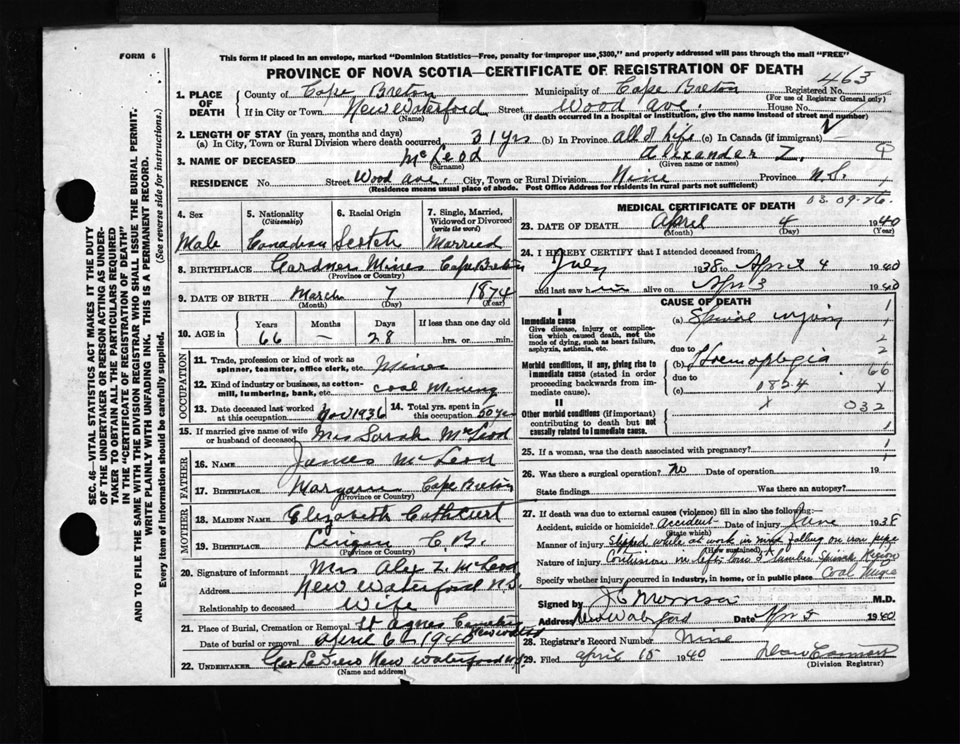 FORM 6
This form if placed in an envelope, marked "Dominion Statistics—Free, penalty for improper use $300," and properly addressed will pass through the mail "FREE"
PROVINCE OF NOVA SCOTIA—CERTIFICATE OF REGISTRATION OF DEATH
463
1. PLACE OF DEATH
County of Cape Breton Municipality of Cape Breton Registered No.
(For use of Registrar General only)
If in City or Town New Waterford Street Wood Ave. House No.
(Name) (If death occurred in a hospital or institution, give the name instead of street and number)
2. LENGTH OF STAY (in years, months and days)
(a) In City, Town or Rural Division where death occurred, 31 yrs (b) In Province all of life (c) In Canada (if immigrant)
3. NAME OF DECEASED McLeod Alexander Z.
(Surname) (Given name or names)
RESIDENCE No. Street Wood ave. City, Town or Rural Division Nine Province N.S.
(Residence means usual place of abode. Post Office Address for residents in rural parts not sufficient)
4. Sex
Male
5. Nationality
(Citizenship)
Canadian
6. Racial Origin
Scotch
7. Single, Married, Widowed or Divorced
(write the word)
Married
8. BIRTHPLACE Gardner Mines Cape Breton
(Province or Country)
9. DATE OF BIRTH March 7 1874
(Month) (Day) (Year)
10. AGE in
Years Months Days If less than one day old
66 — 28 hrs. or min.
OCCUPATION
11. Trade, profession or kind of work as spinner, teamster, office clerk, etc. Miner
12. Kind of industry or business, as cotton-mill, lumbering, bank, etc. Coal Mining
13. Date deceased last worked at this occupation Nov 1936
14. Total yrs. spent in this occupation 50 yrs
15. If married give name of wife or husband of deceased Mrs Sarah McLeod
FATHER
16. NAME James McLeod
17. BIRTHPLACE Margaree Cape Breton
(Province or Country)
MOTHER
18. MAIDEN NAME Elizabeth Cathcart
19. BIRTHPLACE Lingan C.B.
(Province or Country)
20. Signature of informant Mrs Alex Z McLeod
Address New Waterford N.S
Relationship to deceased Wife
21. Place of Burial, Cremation or Removal St Agnes Cemetery
Date of burial or removal April 6 1940
22. UNDERTAKER New Waterford
(Name and address)
03.09.26.
MEDICAL CERTIFICATE OF DEATH
23. DATE OF DEATH April 4 1940
(Month) (Day) (Year)
24. I HEREBY CERTIFY that I attended deceased from:
July 1938 to April 4 1940
and last saw him alive on Apr 3 1940
CAUSE OF DEATH
I
Immediate cause
Give disease, injury or complication which caused death, not the mode of dying, such as heart failure, asphyxia, asthenia, etc.
(a) Spinal injury
due to
Morbid conditions, if any, giving rise to immediate cause (stated in order proceeding backwards from immediate cause)
(b)
due to
(c)
66
032
II
Other morbid conditions (if important) contributing to death but not causally related to immediate cause.
25. If a woman, was the death associated with pregnancy?
26. Was there a surgical operation? No Date of operation 19
State findings Was there an autopsy?
27. If death was due to external causes (violence) fill in also the following:—
Accident, suicide or homicide? accident Date of injury June 1938
(State which)
Manner of injury Slipped while at work in mine falling on iron pipe
(How sustained)
Nature of injury Contusion Lumbar Spinal Region
Specify whether injury occurred in industry, in home, or in public place Coal Mine
Signed by M.D.
Address New Waterford Date Apr 5 1940
28. Registrar's Record Number Nine
29. Filed April 15 1940
(Division Registrar)
SEC. 46—VITAL STATISTICS ACT MAKES IT THE DUTY
OF THE UNDERTAKER OR PERSON ACTING AS UNDER-
TAKER TO OBTAIN ALL THE PARTICULARS REQUIRED
IN THE "CERTIFICATE OF REGISTRATION OF DEATH"
AND TO FILE THE SAME WITH THE DIVISION REGISTRAR WHO SHALL ISSUE THE BURIAL PERMIT.
WRITE PLAINLY WITH UNFADING INK. THIS IS A PERMANENT RECORD.
Every item of information should be carefully supplied. (See reverse side for instructions.)